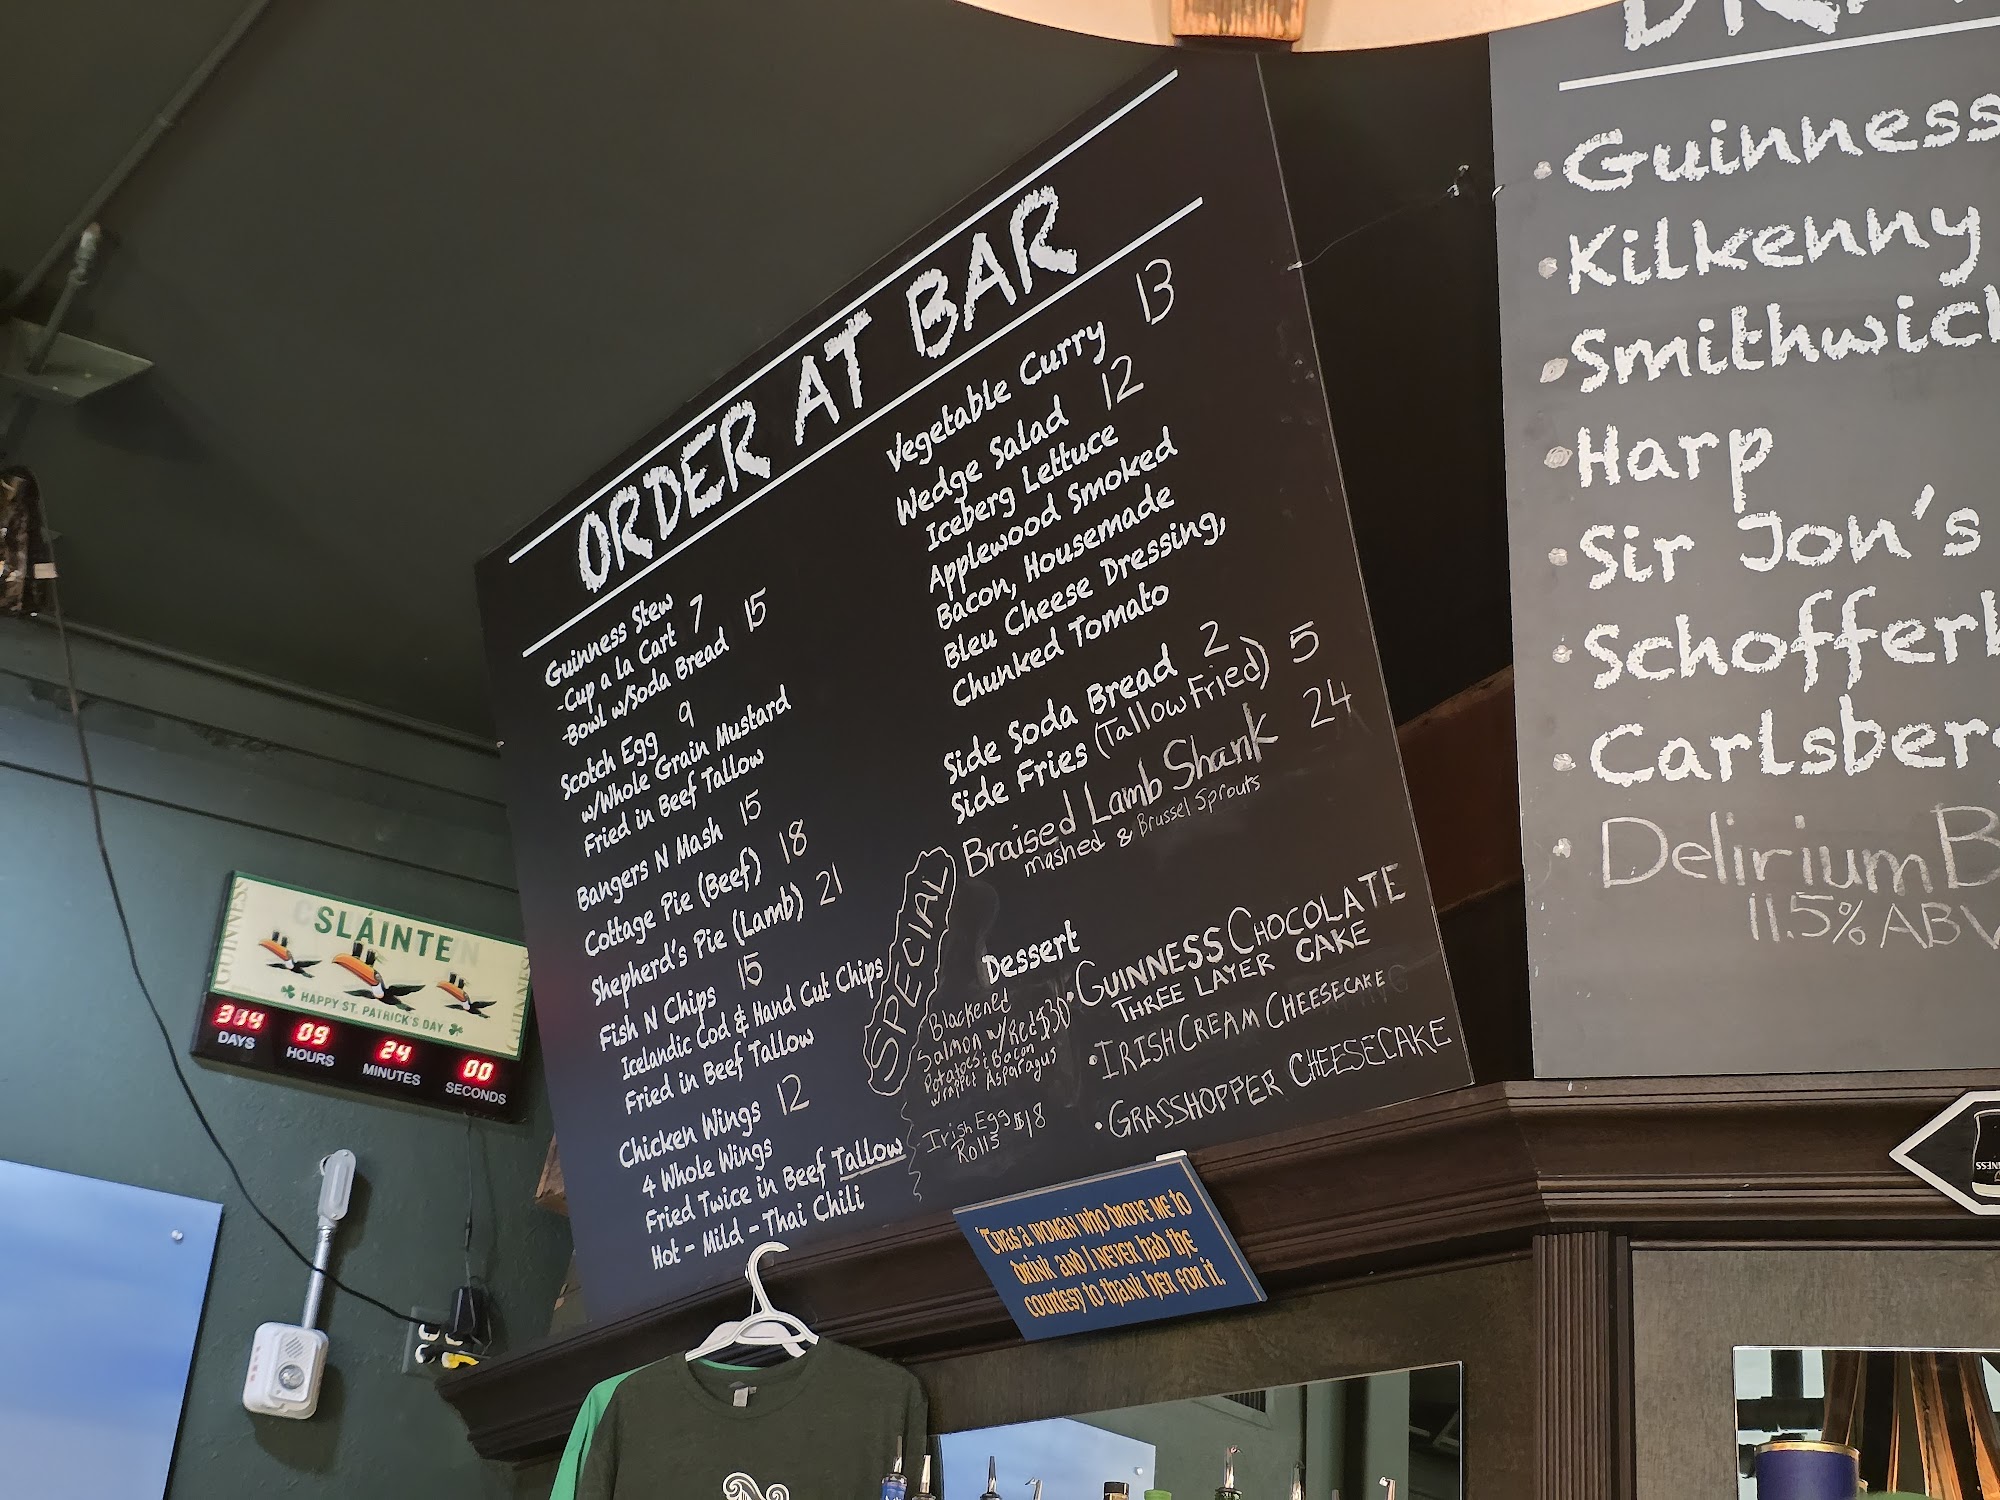 ORDER AT BAR
Guinness Stew
-Cup a la Cart 7
-Bowl w/Soda Bread 15
Scotch Egg 9
w/Whole Grain Mustard
Fried in Beef Tallow
Bangers N Mash 15
Cottage Pie (Beef) 18
Shepherd's Pie (Lamb) 21
Fish N Chips 15
Icelandic Cod & Hand Cut Chips
Fried in Beef Tallow
Chicken Wings 12
4 Whole Wings
Fried Twice in Beef Tallow
Hot - Mild - Thai Chili
Vegetable Curry 13
Wedge Salad 12
Iceberg Lettuce
Applewood Smoked
Bacon, Housemade
Bleu Cheese Dressing,
Chunked Tomato
Side Soda Bread 2
Side Fries (Tallow Fried) 5
Braised Lamb Shank 24
mashed & Brussel Sprouts
SPECIAL
Blackened
Salmon w/Red $30
Potatoes & Bacon
wrappet Asparagus
Irish Egg $18
Rolls
Dessert
• GUINNESS CHOCOLATE
THREE LAYER CAKE
• IRISH CREAM CHEESECAKE
• GRASSHOPPER CHEESECAKE
• Guinness
• Kilkenny
• Smithwick
• Harp
• Sir Jon's
• Schofferh
• Carlsberg
• Delirium B
11.5% ABV
GUINNESS
SLÁINTE
HAPPY ST. PATRICK'S DAY
GUINNESS
314 09 24 00
DAYS HOURS MINUTES SECONDS
'Twas a woman who drove me to
drink and I never had the
courtesy to thank her for it.